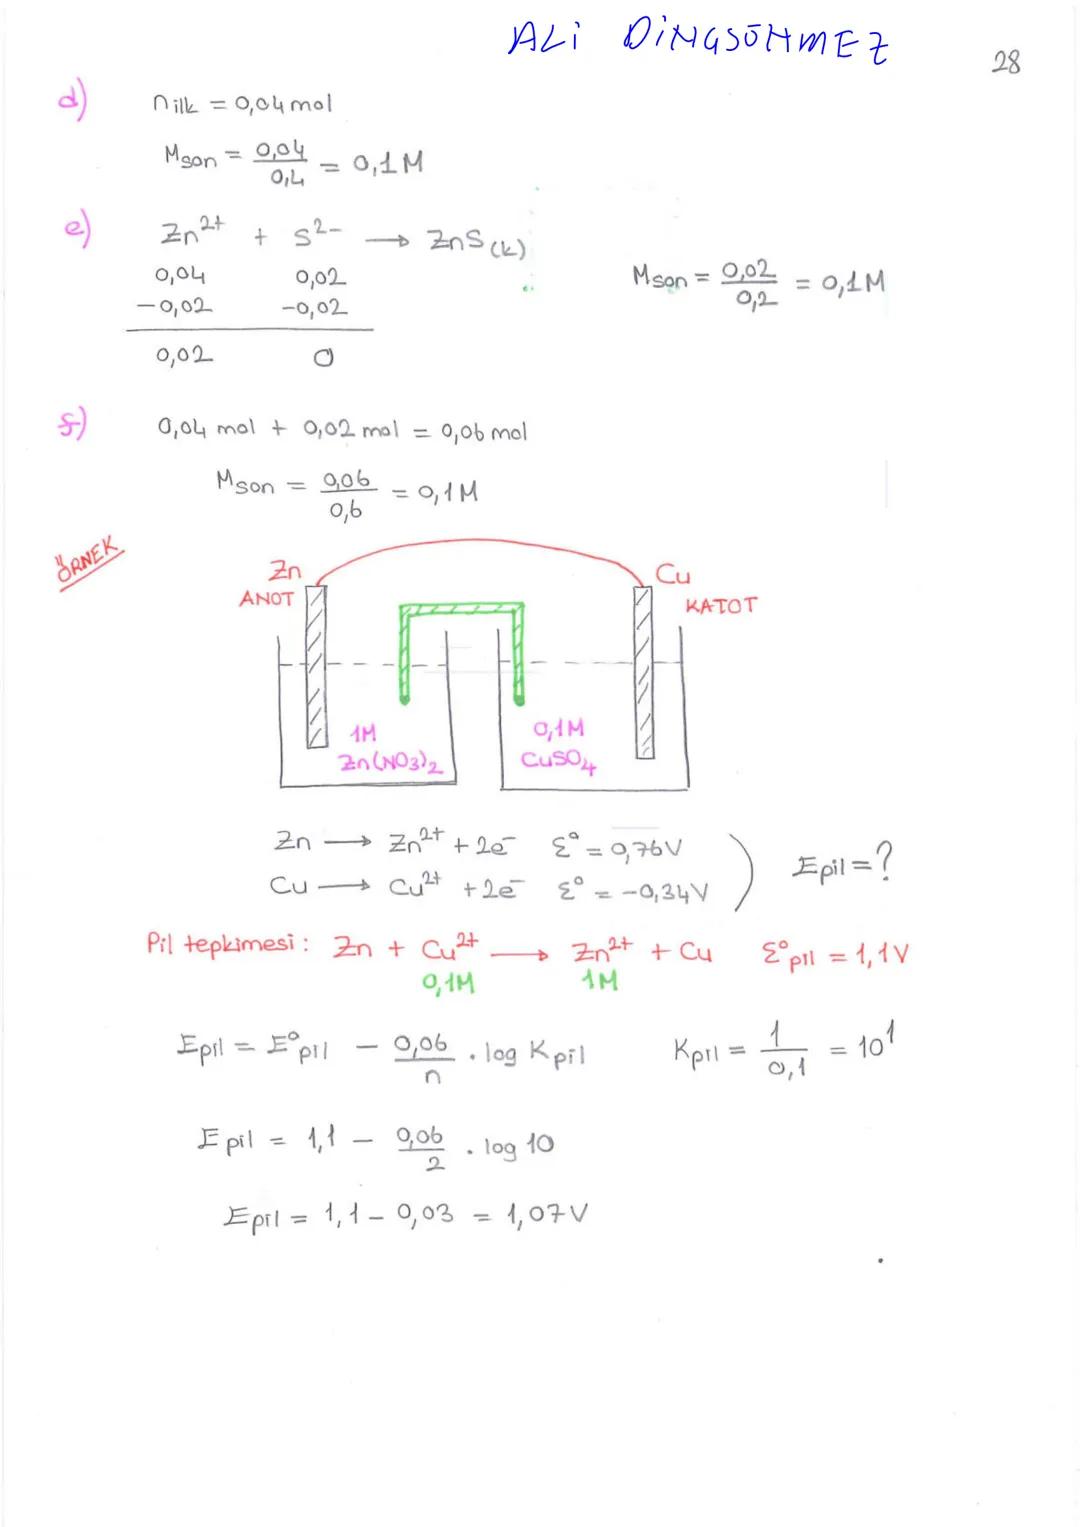 ALİ DİNÇSÖNMEZ
28
d) nilk = 0,04 mol
Mson = 0,04 / 0,4 = 0,1 M
e) Zn2+ + S2- → ZnS(k)
0,04 0,02
-0,02 -0,02
0,02 0
Mson = 0,02 / 0,2 = 0,1M
f) 0,04 mol + 0,02 mol = 0,06 mol
Mson = 0,06 / 0,6 = 0,1M
ÖRNEK
Zn Cu
ANOT KATOT
1M 0,1M
Zn(NO3)2 CuSO4
Zn → Zn2+ + 2e- Ɛ° = 0,76V
Cu → Cu2+ + 2e- Ɛ° = -0,34V
) Epil = ?
Pil tepkimesi: Zn + Cu2+ → Zn2+ + Cu Ɛ°pil = 1,1V
0,1M 1M
Epil = E°pil - 0,06 / n . log Kpil Kpil = 1 / 0,1 = 10^1
Epil = 1,1 - 0,06 / 2 . log 10
Epil = 1,1 - 0,03 = 1,07V